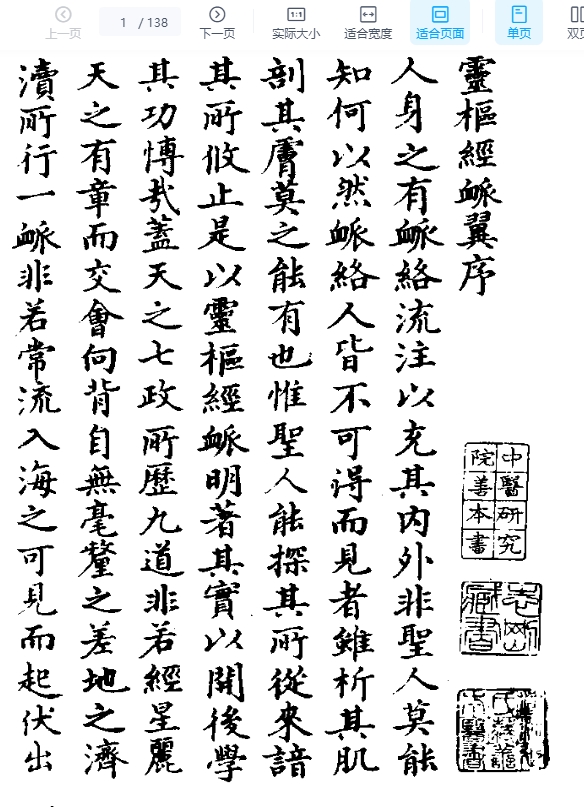 上一页
1 / 138
下一页
实际大小
适合宽度
适合页面
单页
双页
靈樞經衇翼序
人身之有衇絡流注以充其内外非聖人莫能
知何以然衇絡人皆不可得而見者雖析其肌
剖其膚莫之能有也惟聖人能探其所從來諳
其所攸止是以靈樞經衇明著其實以開後學
其功愽哉蓋天之七政所歷九道非若經星麗
天之有章而交會向背自無毫釐之差地之濟
瀆所行一衇非若常流入海之可見而起伏出
中醫研究
院善本書
藏書